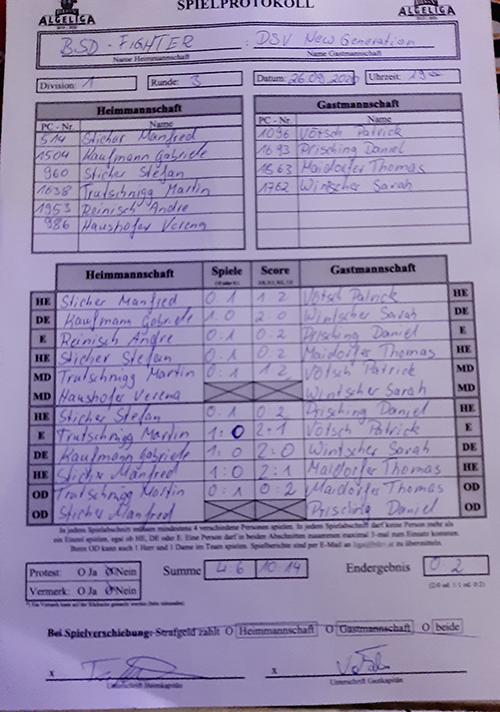 SPIELPROTOKOLL
ALGELIGA ALGELIGA
BSD-FIGHTER : DSV New Generation
Name Heimmannschaft Name Gastmannschaft
Division: 1 Runde: 3 Datum: 26.09.2020 Uhrzeit: 19
Heimmannschaft Gastmannschaft
PC - Nr. Name PC - Nr. Name
514 Sticher Manfred 1096 Votsch Patrick
1504 Kaufmann Gabriele 1693 Prisching Daniel
960 Sticher Stefan 1563 Maidorfer Thomas
1638 Trutschnigg Martin 1762 Wintscher Sarah
1953 Reinisch Andre
986 Haushofer Verena
Heimmannschaft Spiele Score Gastmannschaft
HE Sticher Manfred 0:1 1:2 Votsch Patrick HE
DE Kaufmann Gabriele 1:0 2:0 Wintscher Sarah DE
E Reinisch Andre 0:1 0:2 Prisching Daniel E
HE Sticher Stefan 0:1 0:2 Maidorfer Thomas HE
MD Trutschnigg Martin 0:1 1:2 Votsch Patrick MD
MD Haushofer Verena Wintscher Sarah MD
HE Sticher Stefan 0:1 0:2 Prisching Daniel HE
E Trutschnigg Martin 1:0 2:1 Votsch Patrick E
DE Kaufmann Gabriele 1:0 2:0 Wintscher Sarah DE
HE Sticher Manfred 1:0 2:1 Maidorfer Thomas HE
OD Trutschnigg Martin 0:1 0:2 Maidorfer Thomas OD
OD Sticher Manfred Prisching Daniel OD
In jedem Spielabschnitt müssen mindestens 4 verschiedene Personen spielen. In jedem Spielabschnitt darf keine Person mehr als
ein Einzel spielen, egal ob HE, DE oder E. Eine Person darf in beiden Abschnitten zusammen maximal 3-mal zum Einsatz kommen.
Beim OD kann auch 1 Herr und 1 Dame im Team spielen. Spielberichte sind per E-Mail an zu übermitteln.
Protest: O Ja O Nein Summe 4:6 10:14 Endergebnis 0:2
Vermerk: O Ja O Nein
Bei Spielverschiebung: Strafgeld zahlt O Heimmannschaft O Gastmannschaft O beide
x x
Unterschrift Heimkapitän Unterschrift Gastkapitän